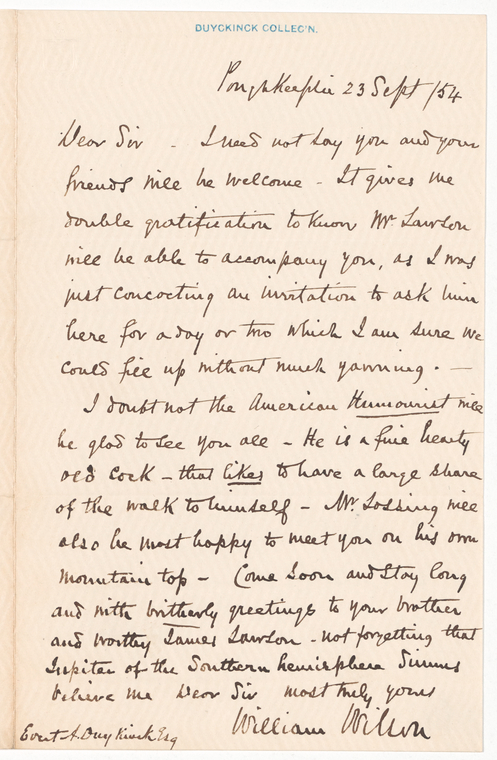 DUYCKINCK COLLEC'N.
Poughkeepsie 23 Sept /54
Dear Sir - I need not say you and your
friends will be welcome - It gives me
double gratification to know Mr Lawson
will be able to accompany you, as I was
just concocting an invitation to ask him
here for a day or two which I am sure we
could fill up without much yawning. -
I doubt not the American Humourist will
be glad to see you all - He is a fine hearty
old cock - that likes to have a large share
of the walk to himself - Mr. Lossing will
also be most happy to meet you on his own
mountain top - Come soon and stay long
and with britherly greetings to your brother
and worthy James Lawson - not forgetting that
Jupiter of the Southern hemisphere Simms
believe me Dear Sir most truly yours
William Wilson
Evert A. Duykinck Esq